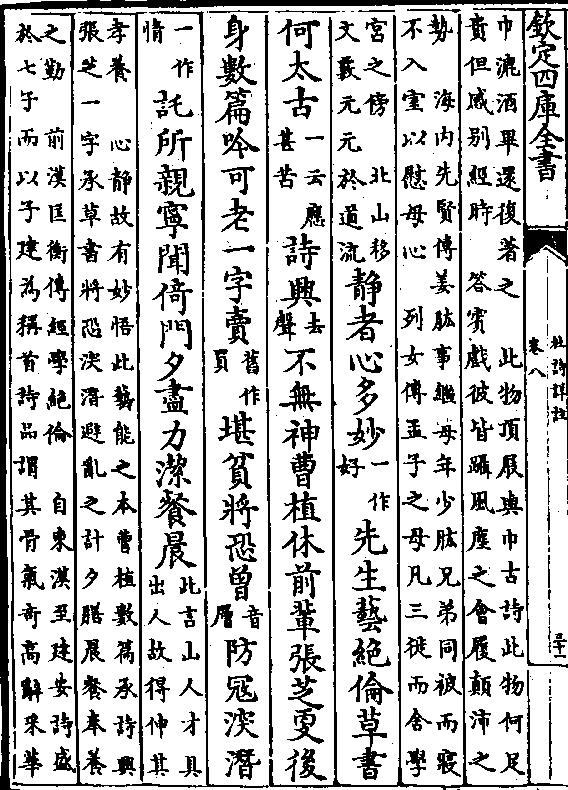 欽定四庫全書
杜詩詳註
卷八
三十一
巾漉酒畢還復著之 此物頂屐與巾古詩此物何足
貴但感别經時 答賓戲彼皆躡風塵之會履顛沛之
勢 海内先賢傳姜肱事繼母年少肱兄弟同被而寢
不入室以慰母心 列女傳孟子之母凡三徙而舍學
宫之傍 北山移
文覈元元於道流
静者心多妙
一作
好
先生藝絶倫草書
何太古
一云應
甚苦
詩興
去
聲
不無神曹植休前輩張芝更後
身數篇吟可老一字賣
舊作
買
堪貧將恐曾
音
層
防寇深潛
一作
情
託所親寧聞倚門夕盡力潔餐晨
此言山人才具
出人故得伸其
孝養 心静故有妙悟此藝能之本曹植數篇承詩興
張芝一字承草書將恐深潛避亂之計夕膳晨餐奉養
之勤 前漢匡衡傳經學絶倫 自東漢至建安詩盛
於七子而以子建為稱首詩品謂其骨氣奇高辭采華